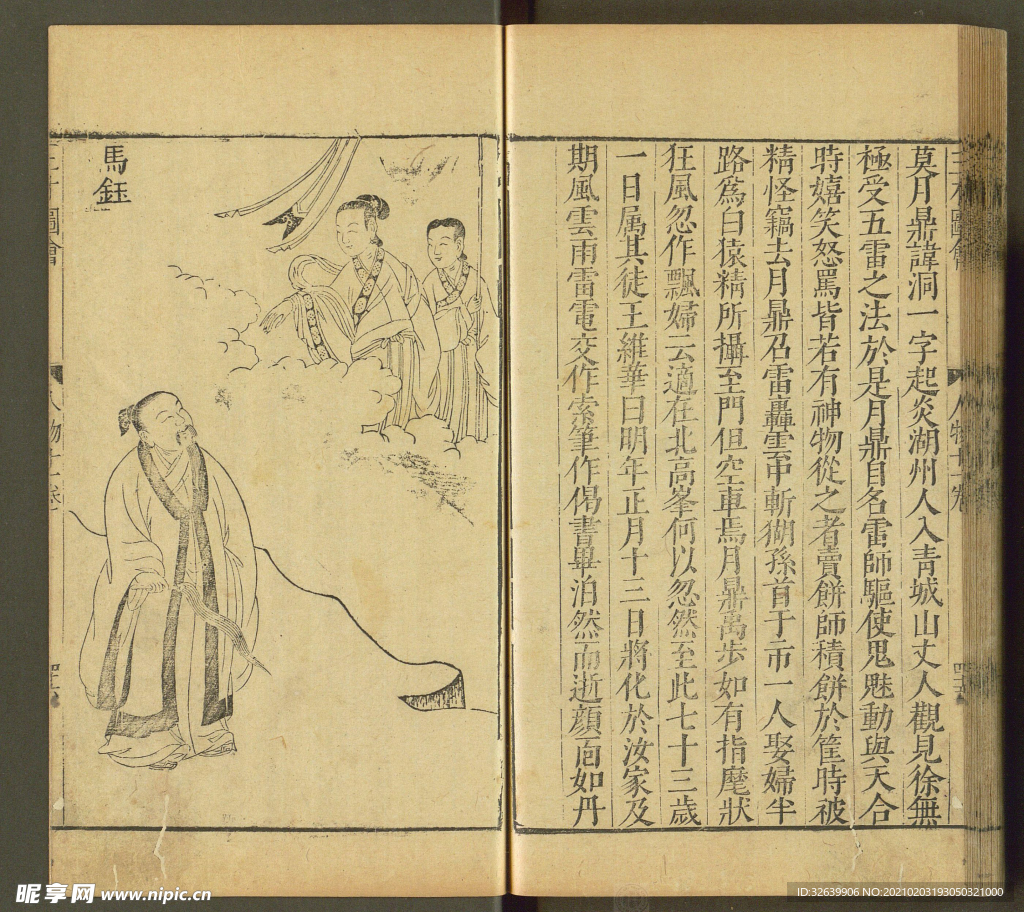 三才圖會
人物十一卷
莫月鼎諱洞一字起炎湖州人入青城山丈人觀見徐無
極受五雷之法於是月鼎自名雷師驅使鬼魅動與天合
時嬉笑怒罵皆若有神物從之者賣餅師積餅於筐時被
精怪竊去月鼎召雷轟雲中斬猢孫首于市一人娶婦半
路爲白猿精所攝至門但空車焉月鼎禹步如有指麾狀
狂風忽作飄婦云適在北高峯何以忽然至此七十三歲
一日属其徒王維華曰明年正月十三日將化於汝家及
期風雲雨雷電交作索筆作偈書畢泊然而逝顔面如丹
馬鈺
圖會
人物十一卷
昵享网 www.nipic.cn
ID:32639906 NO:20210203193050321000